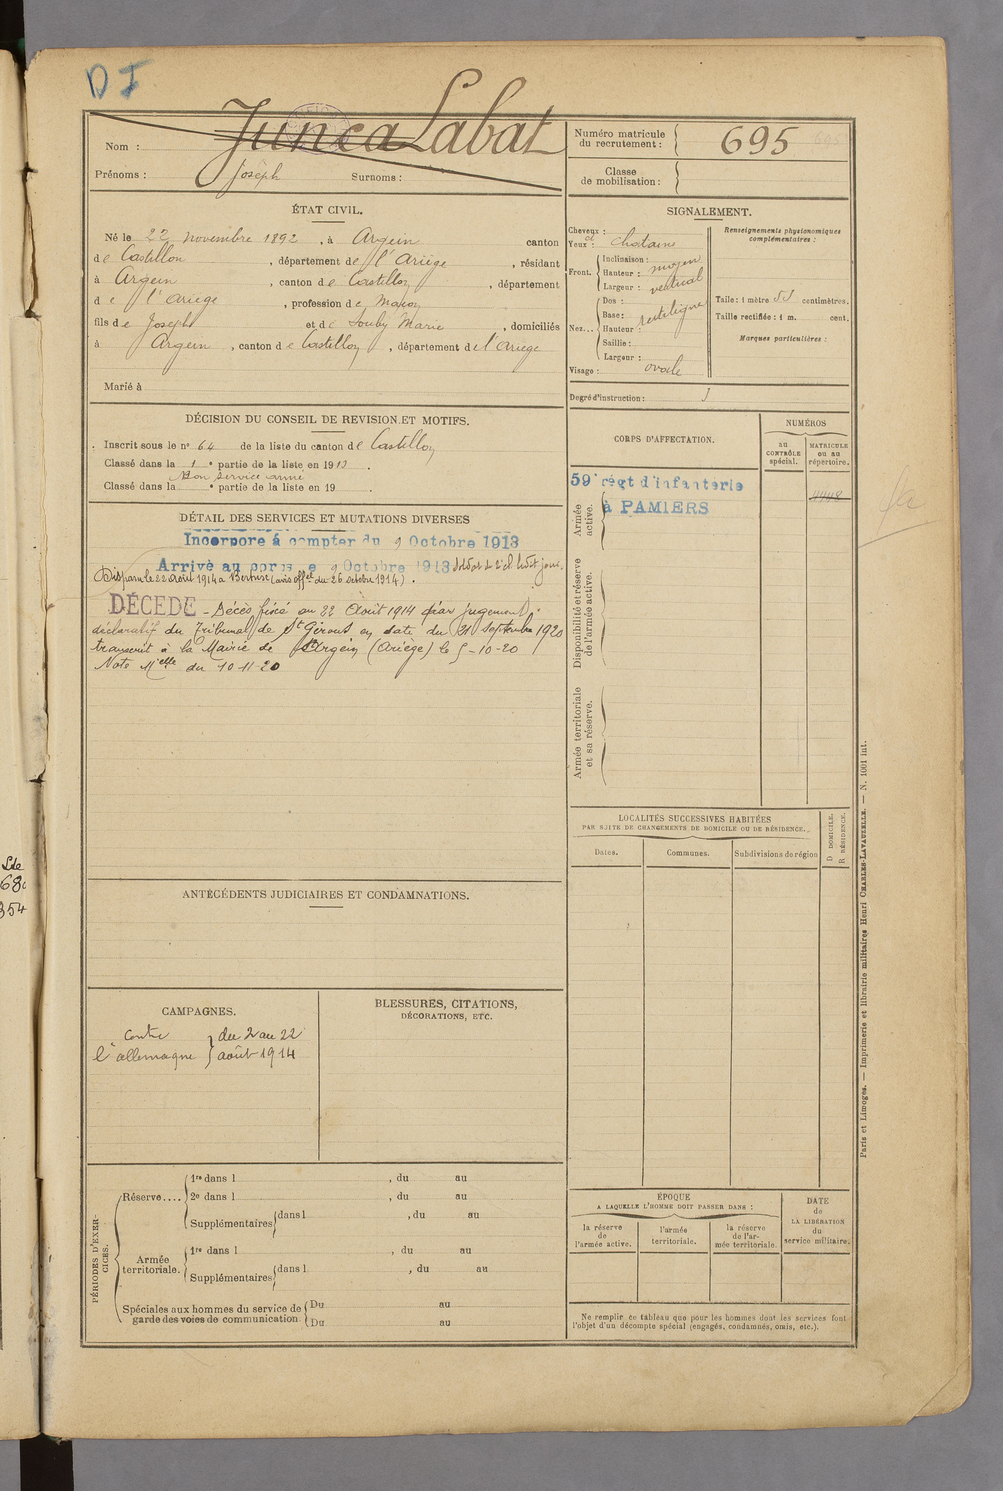 D I
Nom : Junca Labat
Prénoms : Joseph Surnoms :
Numéro matricule
du recrutement : 695
Classe
de mobilisation :
ÉTAT CIVIL.
Né le 22 novembre 1892, à Argein canton
de Castillon, département de l'Ariège, résidant
à Argein, canton de Castillon, département
de l'Ariège, profession de Maçon
fils de Joseph et de Souby Marie, domiciliés
à Argein, canton de Castillon, département de l'Ariège
Marié à
SIGNALEMENT.
Cheveux :
Yeux : et chatains
Front. Inclinaison : moyen
Hauteur : vertical
Largeur :
Nez... Dos : rectiligne
Base :
Hauteur :
Saillie :
Largeur :
Visage : ovale
Renseignements physionomiques
complémentaires :
Taille : 1 mètre 55 centimètres.
Taille rectifiée : 1 m. cent.
Marques particulières :
Degré d'instruction :
DÉCISION DU CONSEIL DE REVISION ET MOTIFS.
Inscrit sous le n° 64 de la liste du canton de Castillon
Classé dans la 1e partie de la liste en 1913.
Bon service armé
Classé dans la e partie de la liste en 19 .
DÉTAIL DES SERVICES ET MUTATIONS DIVERSES
Incorporé à compter du 9 Octobre 1913
Arrivé au corps le 9 Octobre 1913 soldat de 2e cl. ledit jour.
Disparu le 22 août 1914 à Bertrix (avis offel du 26 octobre 1914).
DÉCÉDÉ - Décès fixé au 22 Août 1914 par jugement
déclaratif du Tribunal de St Girons en date du 21 Septembre 1920
transcrit à la Mairie de Argein (Ariège) le 5-10-20
Note Mielle du 10-11-20
CORPS D'AFFECTATION.
NUMÉROS
au
CONTRÔLE
spécial.
MATRICULE
ou au
répertoire.
Armée
active.
59e régt d'infanterie
à PAMIERS
4448
Disponibilité et réserve
de l'armée active.
Armée territoriale
et sa réserve.
LOCALITÉS SUCCESSIVES HABITÉES
PAR SUITE DE CHANGEMENTS DE DOMICILE OU DE RÉSIDENCE.
Dates.
Communes.
Subdivisions de région
D DOMICILE.
R RÉSIDENCE.
ANTÉCÉDENTS JUDICIAIRES ET CONDAMNATIONS.
CAMPAGNES.
Contre du 2 au 22
l'allemagne août 1914
BLESSURES, CITATIONS,
DÉCORATIONS, ETC.
PÉRIODES D'EXERCICES.
Réserve.... 1re dans l , du au
2e dans l , du au
Supplémentaires dans l , du au
Armée
territoriale. 1re dans l , du au
Supplémentaires dans l , du au
Spéciales aux hommes du service de
garde des voies de communication Du au
Du au
ÉPOQUE
A LAQUELLE L'HOMME DOIT PASSER DANS :
la réserve
de
l'armée active.
l'armée
territoriale.
la réserve
de l'ar-
mée territoriale.
DATE
de
LA LIBÉRATION
du
service militaire.
Ne remplir ce tableau que pour les hommes dont les services font
l'objet d'un décompte spécial (engagés, condamnés, omis, etc.).
Paris et Limoges. — Imprimerie et librairie militaires Henri CHARLES-LAVAUZELLE. — N. 1001 int.
Ste
354